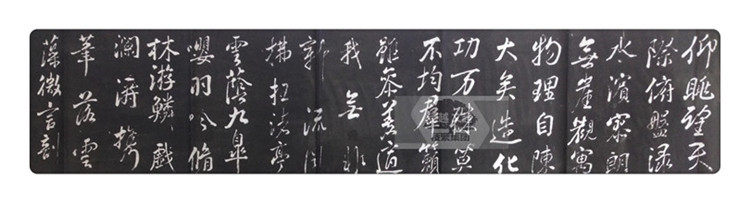 仰眺望天
際俯盤渌
水濱寥朗
無崖觀寓
物理自陳
大矣造化
功万殊莫
不均群籟
雖參差適
我無非
新流風
拂枉渚亭
雲蔭九皐
嚶羽吟脩
林游鱗戲
瀾濤攜
筆落雲
藻微言剖